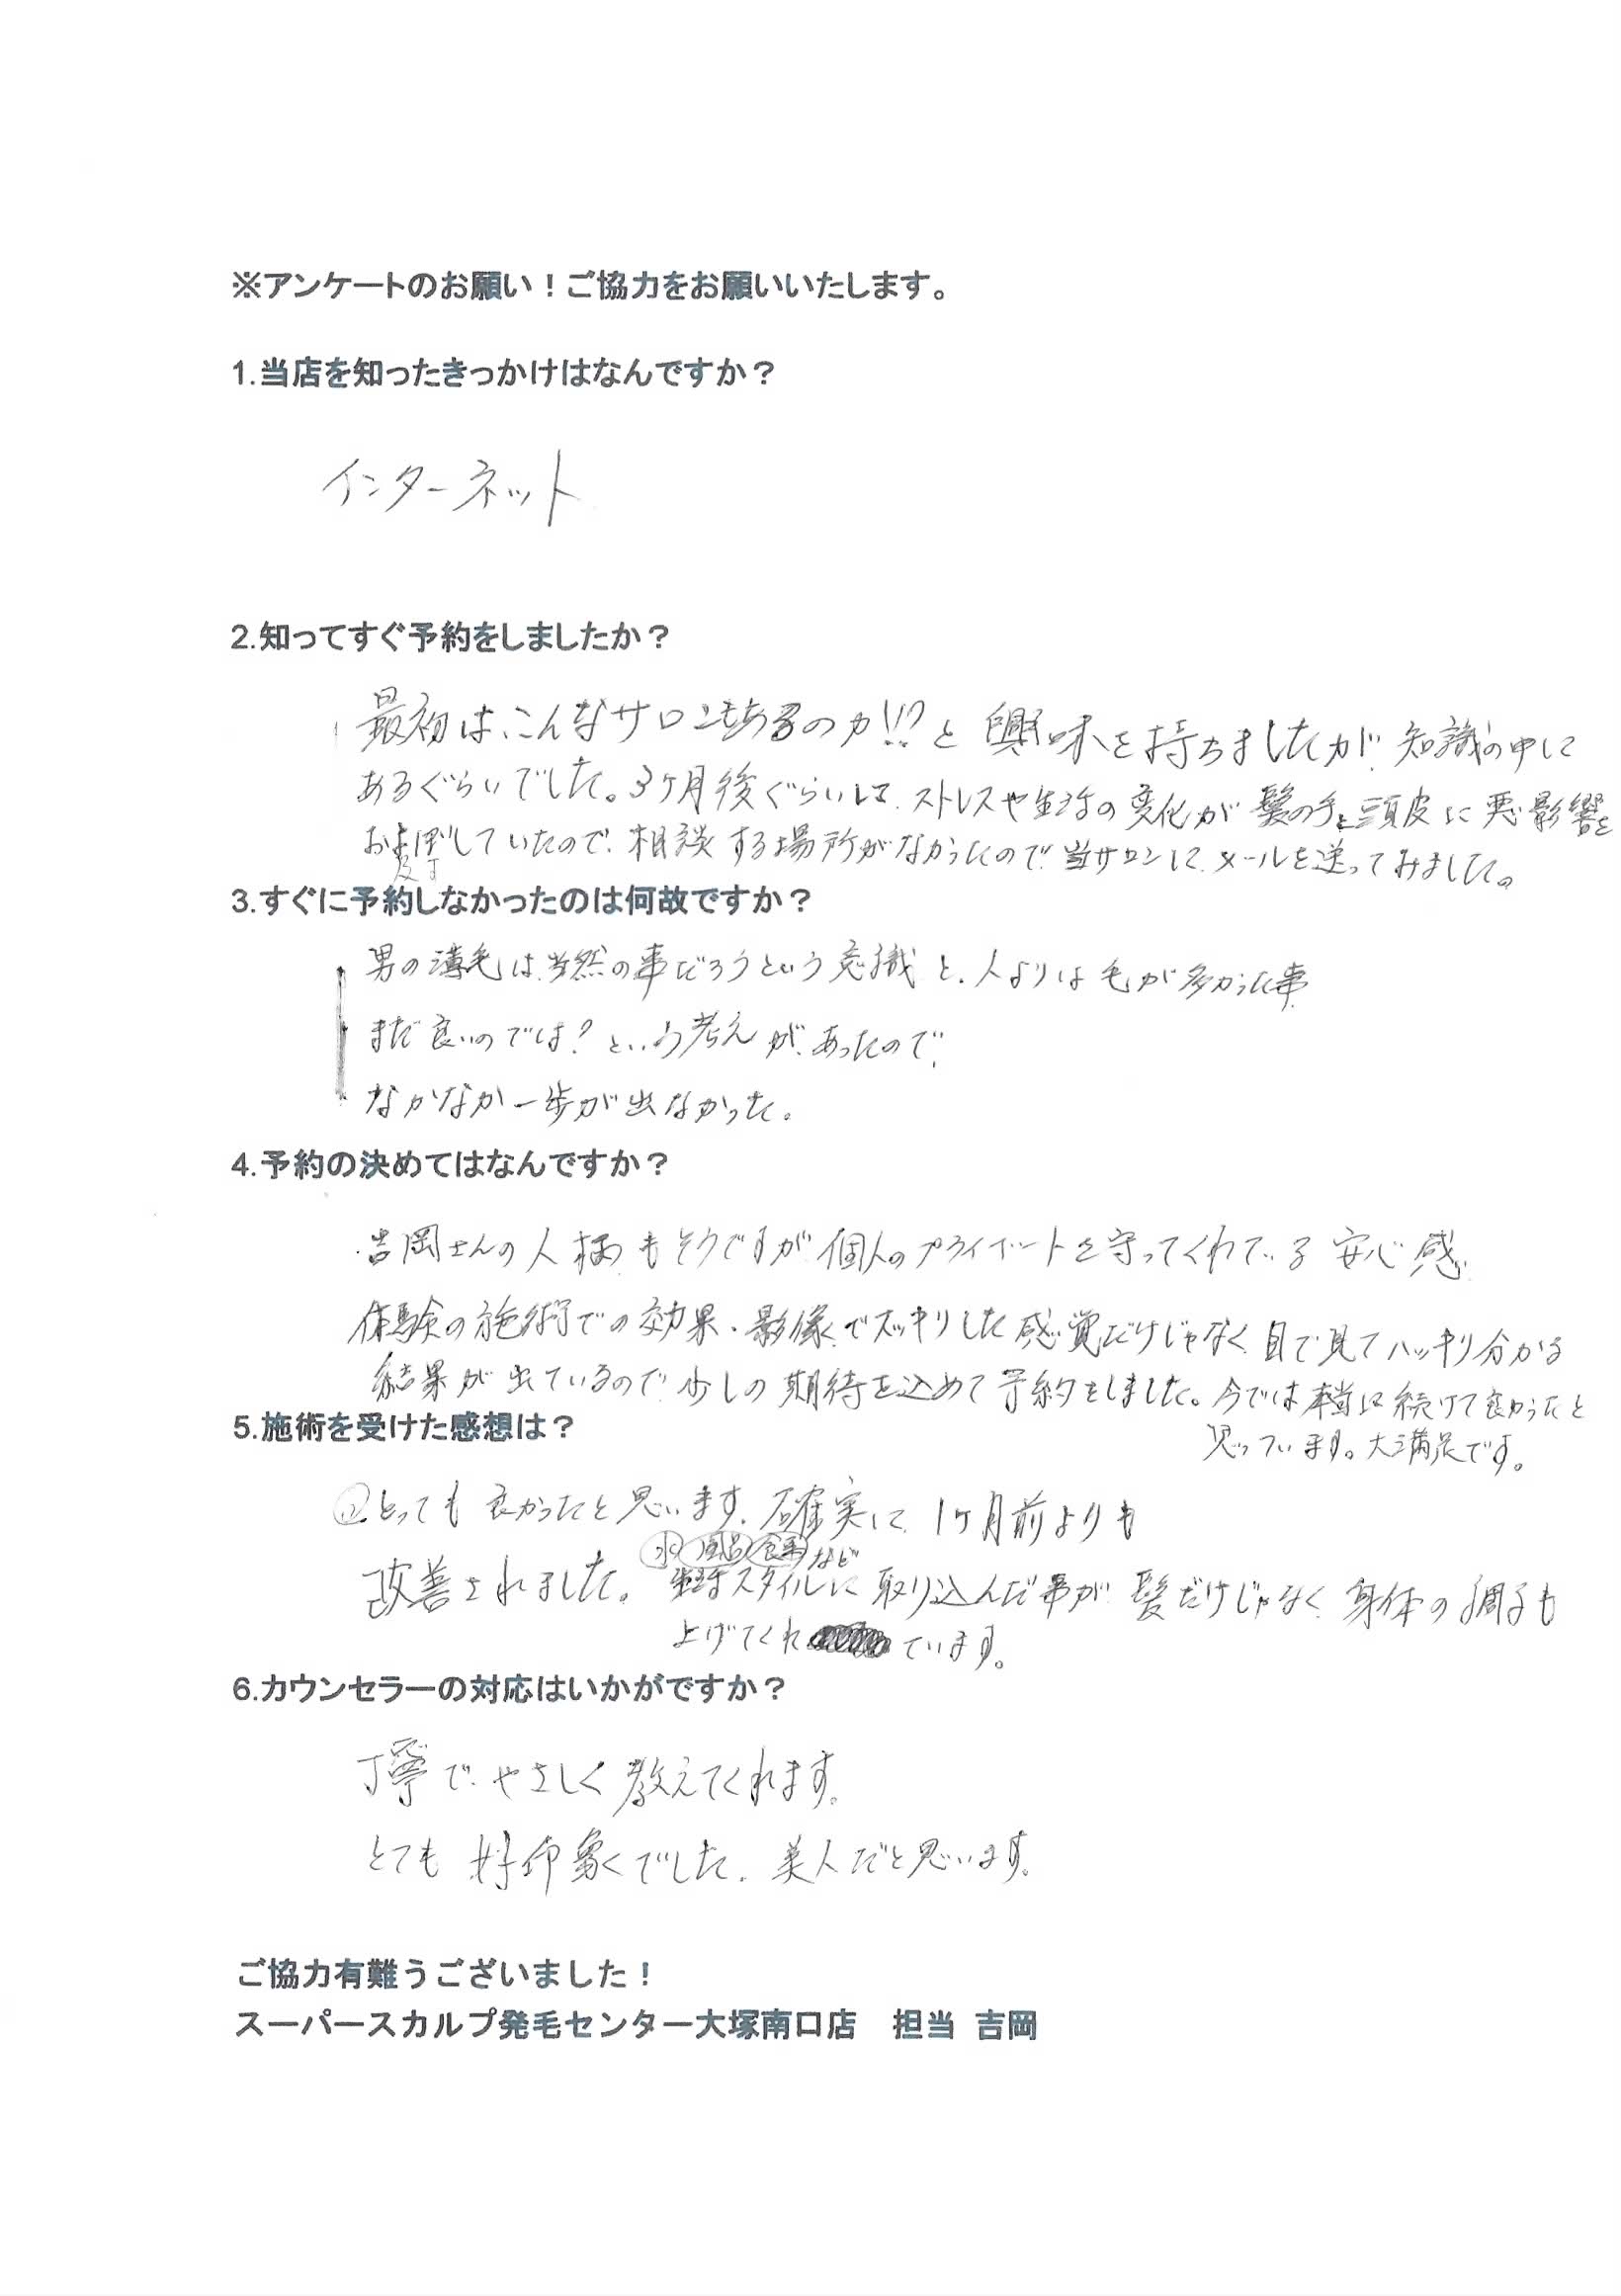 ※アンケートのお願い！ご協力をお願いいたします。
1.当店を知ったきっかけはなんですか？
インターネット
2.知ってすぐ予約をしましたか？
最初は、こんなサロンもあるのか!!?と興味を持ちましたが、知識の中に
あるぐらいでした。3ヶ月後ぐらいして、ストレスや生活の変化が髪の手と頭皮に悪影響を
およぼしていたので、相談する場所がなかったので、当サロンにメールを送ってみました。
及ぼ
3.すぐに予約しなかったのは何故ですか？
男の薄毛は当然の事だろうという意識と、人よりは毛が多かった事
まだ良いのでは？という考えが、あったので、
なかなか一歩が出なかった。
4.予約の決めてはなんですか？
・吉岡さんの人柄もそうですが、個人のプライベートを守ってくれている安心感
体験の施術での効果・影像でスッキリした感覚だけじゃなく、目で見てハッキリ分かる
結果が出ているので、少しの期待を込めて予約をしました。今では本当に続けて良かったと
思っています。大満足です。
5.施術を受けた感想は？
とっても良かったと思います。確実に、1ヶ月前よりも
水 食事 など
改善されました。生活スタイルに取り込んだ事が、髪だけじゃなく、身体の調子も
上げてくれ ています。
6.カウンセラーの対応はいかがですか？
丁寧で、やさしく教えてくれます。
とても好印象でした。美人だと思います。
ご協力有難うございました！
スーパースカルプ発毛センター大塚南口店 担当 吉岡